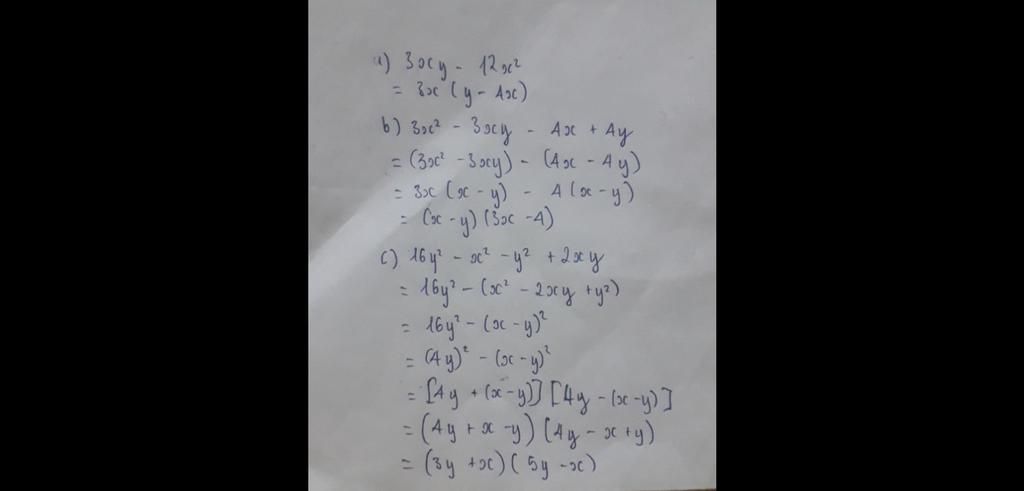 a) 3xy - 12x²
= 3x (y - 4x)
b) 3x² - 3xy - 4x + 4y
= (3x² - 3xy) - (4x - 4y)
= 3x (x - y) - 4 (x - y)
= (x - y) (3x - 4)
c) 16y² - x² - y² + 2xy
= 16y² - (x² - 2xy + y²)
= 16y² - (x - y)²
= (4y)² - (x - y)²
= [4y + (x - y)] [4y - (x - y)]
= (4y + x - y) (4y - x + y)
= (3y + x) (5y - x)